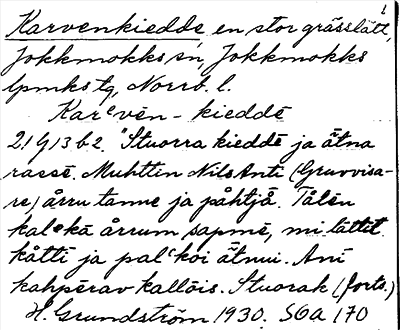 1
Karvenkiedde, en stor grässlätt,
Jokkmokks sn, Jokkmokks
lpmks tg, Norrb. l.
Karᵉvēn - kieddē
21913b2. "Stuorra kieddē ja ätna
rassē. Muhttin Nils Anti (Gruvvisa-
re) årru tanne ja påhtjå. Tålēn
kalᵉkā årrum sapmē, mi tättit
kåtti ja palᵉkoi ätnui. Ani
kahpērav kallōis. Stuorak (forts.)
H. Grundström 1930. SOA 170